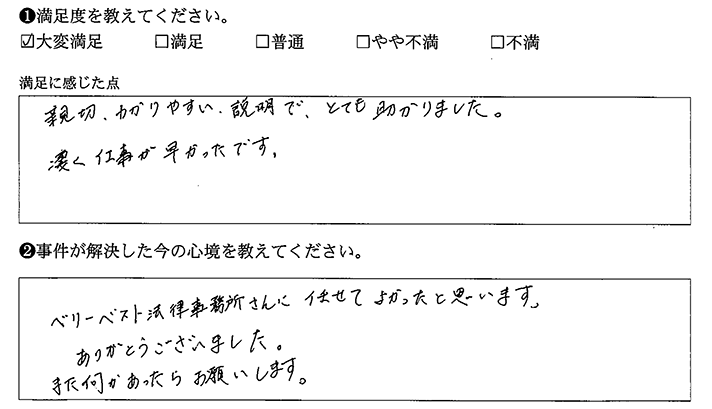 ❶満足度を教えてください。
☑大変満足 □満足 □普通 □やや不満 □不満
満足に感じた点
親切、わかりやすい、説明で、とても助かりました。
凄く仕事が早かったです。
❷事件が解決した今の心境を教えてください。
ベリーベスト法律事務所さんに任せてよかったと思います。
ありがとうございました。
また何かあったらお願いします。